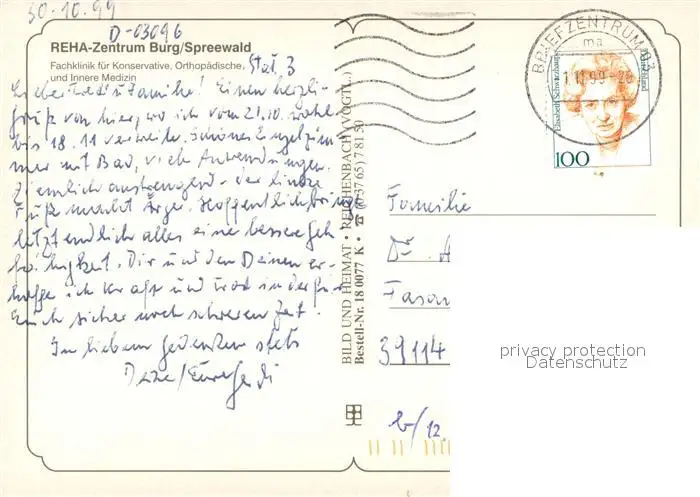 30.10.99
D-03096
REHA-Zentrum Burg/Spreewald
Fachklinik für Konservative, Orthopädische,
und Innere Medizin
Stat. 3
Liebe Familie! Einen herzli-
gruß von hier, wo ich vom 21.10. wohl
bis 18.11 verweile. Schönes Einzelzim-
mer mit Bad, viele Anwendungen.
Ziemlich anstrengend - der linke
Fuß macht Ärger. Hoffentlich bringt
letztendlich alles eine bessere Geh-
fähigkeit. Dir und den Deinen er-
hoffe ich Kraft und Trost in der für
Euch sicher noch schweren Zeit.
In liebem Gedenken stets
Deine/Eure
BILD UND HEIMAT · REICHENBACH (VOGTL.)
Bestell-Nr. 18 0077 K · ☎ (0 37 65) 7 81 50
BRIEFZENTRUM
ma
1.11.99-20
Elisabeth Schwarzhaupt
100
Familie
Dr.
39114
b/12
privacy protection
Datenschutz